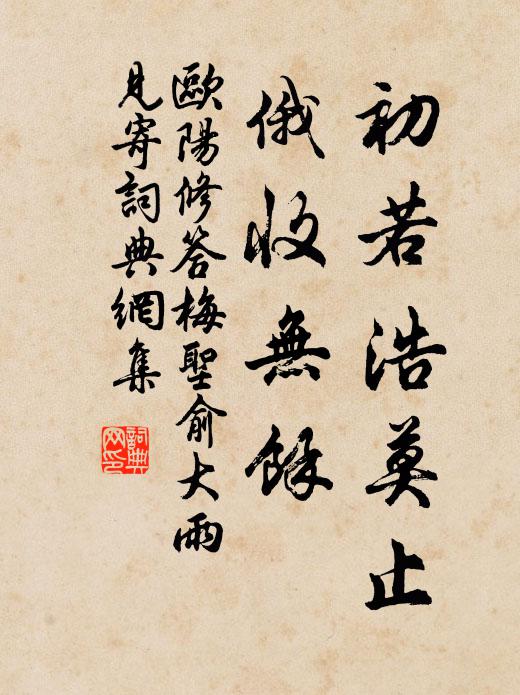 初若浩莫止
俄收無餘
歐陽修答梅聖俞大雨
見寄詞典網集
詞典
网印